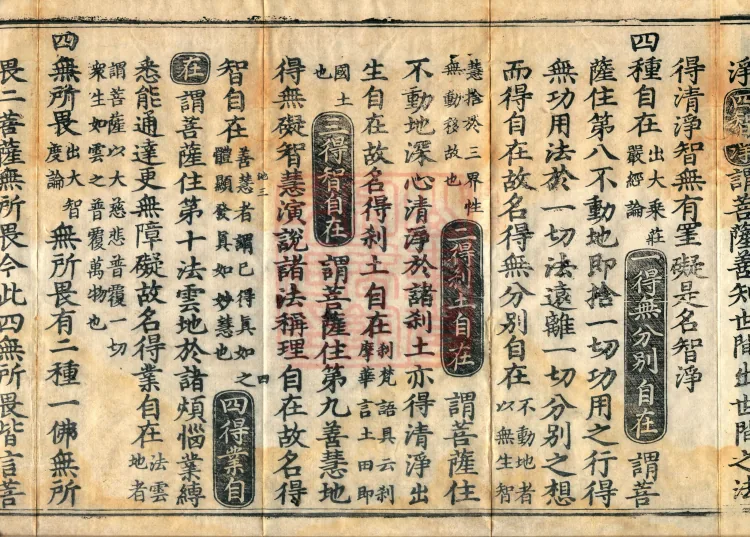 淨四謂菩薩善知世間出世間之法
得清淨智無有罣礙是名智淨
四種自在出大乘莊嚴經論一得無分別自在謂菩
薩住第八不動地即捨一切功用之行得
無功用法於一切法遠離一切分別之想
而得自在故名得無分別自在不動地者以無生智
慧捨於三界性無動移故也二得刹土自在謂菩薩住
不動地深心清淨於諸刹土亦得清淨出
生自在故名得刹土自在刹梵語具云刹摩華言土田即
國土也三得智自在謂菩薩住第九善慧地
得無礙智慧演說諸法稱理自在故名得
池三 四
智自在善慧者謂已得眞如之體顯發眞如妙慧也四得業自
在謂菩薩住第十法雲地於諸煩惱業縛
悉能通達更無障礙故名得業自在法雲地者
謂菩薩以大慈悲普覆一切衆生如雲之普覆萬物也
四無所畏出大智度論無所畏有二種一佛無所
畏二菩薩無所畏今此四無所畏皆言菩